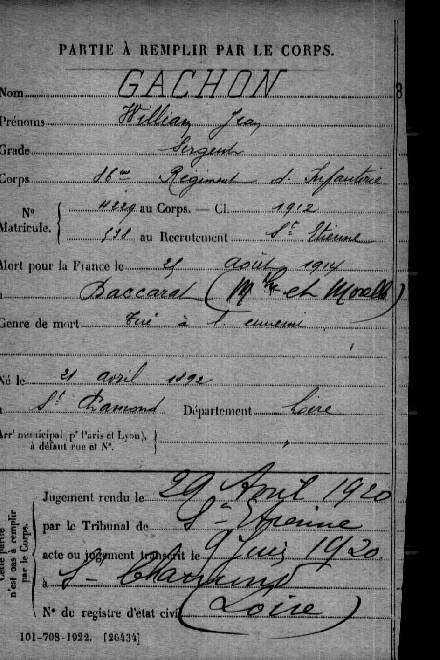 PARTIE À REMPLIR PAR LE CORPS.
Nom GACHON
Prénoms William Jean
Grade Sergent
Corps 86me Régiment d'Infanterie
N° Matricule. { 4229 au Corps. — Cl. 1912
538 au Recrutement St Etienne
Mort pour la France le 25 août 1914
à Baccarat (Mthe et Moselle)
Genre de mort Tué à l'ennemi
Né le 21 avril 1892
à St Chamond Département Loire
Arrt municipal (pr Paris et Lyon), }
à défaut rue et N°.
Cette partie n'est pas à remplir par le Corps.
Jugement rendu le 29 Avril 1920
par le Tribunal de St Etienne
acte ou jugement transcrit le 9 Juin 1920
à St Chamond
N° du registre d'état civil (Loire)
101-708-1922. [26434]